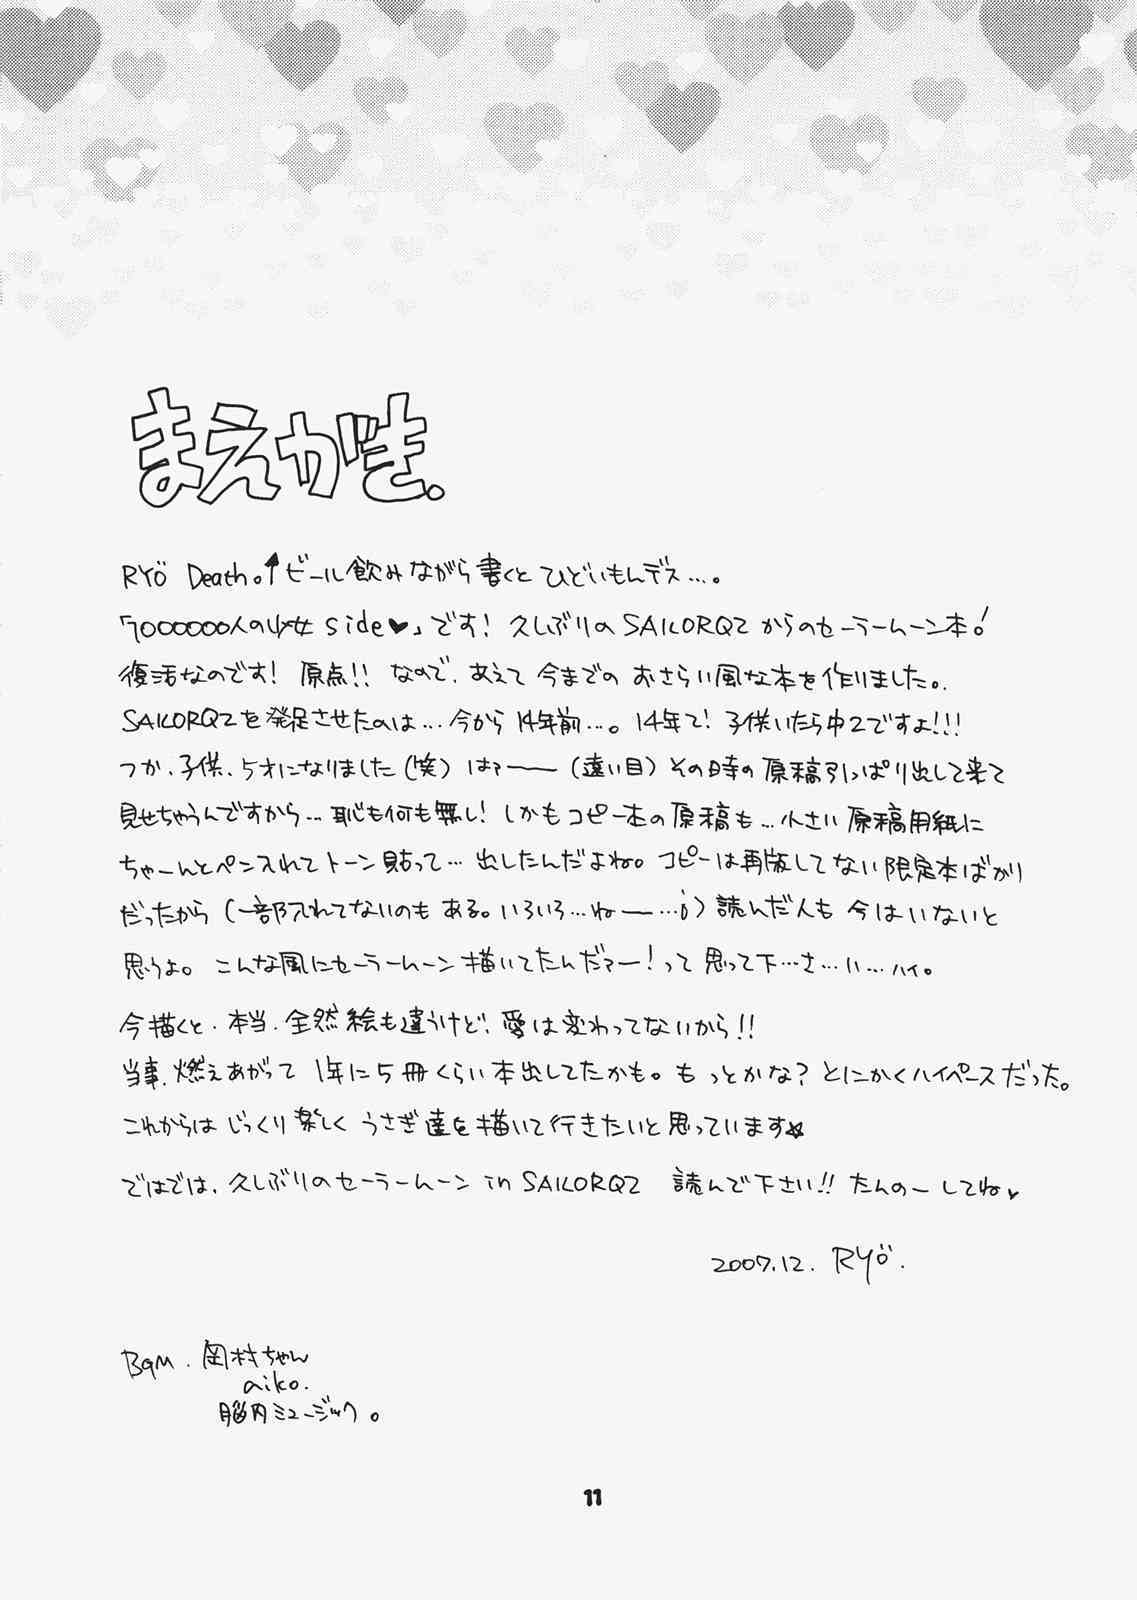 まえがき。
RYÖ Death。↑ビール飲みながら書くとひどいもんデス…。
「7000000人の少女 side♥」です! 久しぶりのSAILORQ2からのセーラームーン本!
復活なのです! 原点!! なので、あえて今までのおさらい風な本を作りました。
SAILORQ2を発足させたのは…今から14年前…。14年て! 子供いたら中2ですよ!!!
つか、子供、5才になりました(笑) はァー(遠い目) その時の原稿引っぱり出して来て
見せちゃうんですから…恥も何も無し! しかもコピー本の原稿も…小さい原稿用紙に
ちゃーんとペン入れてトーン貼って…出したんだよね。コピーは再版してない限定本ばかり
だったから(一部入れてないのもある。いろいろ…ねー…) 読んだ人も今はいないと
思うよ。こんな風にセーラームーン描いてたんだァー! って思って下…さ…い…ハイ。
今描くと、本当、全然絵も違うけど、愛は変わってないから!!
当事、燃えあがって1年に5冊くらい本出してたかも。もっとかな? とにかくハイペースだった。
これからはじっくり楽しくうさぎ達を描いて行きたいと思っています☆
ではでは、久しぶりのセーラームーン in SAILORQ2 読んで下さい!! たんのーしてね♥
2007.12. RYÖ.
BGM. 岡村ちゃん
aiko.
脳内ミュージック。
11